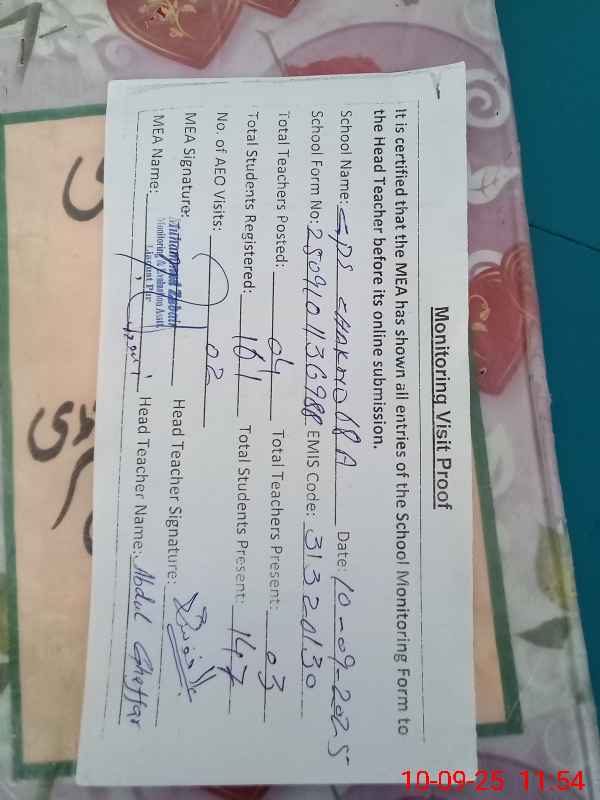 Monitoring Visit Proof
It is certified that the MEA has shown all entries of the School Monitoring Form to
the Head Teacher before its online submission.
School Name: GPS CHAK NO 68 A Date: 10-09-2025
School Form No: 2509101136988 EMIS Code: 31320130
Total Teachers Posted: 04 Total Teachers Present: 03
Total Students Registered: 161 Total Students Present: 147
No. of AEO Visits: 02
MEA Signature: Head Teacher Signature:
Muhammad
Monitoring & Evaluation Asstt
Liaqat Pur
MEA Name: Head Teacher Name: Abdul Ghaffar
10-09-25 11:54